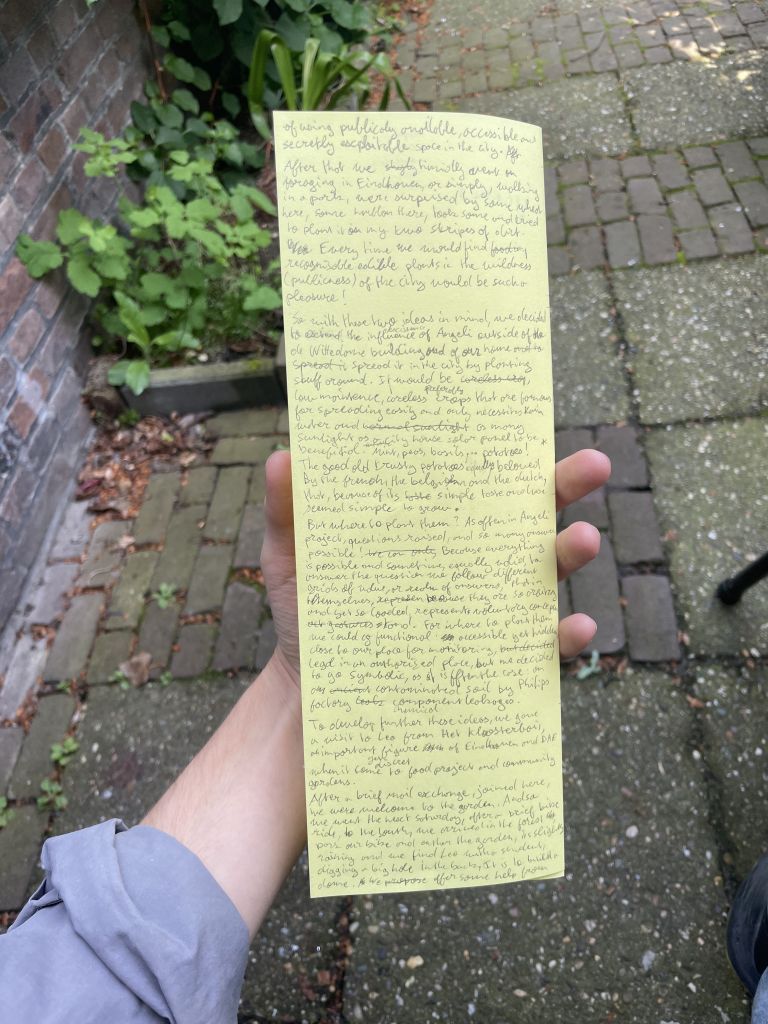 of using publicly available, accessible and
secretly exploitable space in the city. Aft
After that we simply friendly went on
foraging in Eindhoven, or simply, walking
in a park, were surprised by some wheat
here, some onion there, took some and tried
to plant it on my two stripes of dirt.
Every time we would find foodny
recognisable edible plants in the wildness
(publicness) of the city would be such a
pleasure!
So with these two ideas in mind, we decided
to extend the influence of Angeli outside of the
de Wittedame building and of our home and to
spread it spread it in the city by planting
stuff around. It would be careless crop,
preferably
low maintence, careless crops that are famous
for spreading easily and only necessiting rain
water and normal sunlight as many
sunlight as any house solar panel to be
benefitial. Mint, peas, basil,... potatoes!
The good old trusty potatoes equally beloved
By the french, the belgian and the dutch,
that, because of its taste simple taste and use
seemed simple to grow.
But where to plant them? As often in Angeli
project, questions raised, and so many answers
possible! we can only Because everything
is possible and sometime, equally valid to
answer the question we follow different
grids of value, or realm of answers, that in
themselves, represen because they are so arbitrary
and yet so loaded, represents voluntary concepts
our gestures stand! For where to plant them
we could go functional: accessible yet hidden
close to our place for monitoring, but decided
legal in an authorised place, but we decided
to go symbolic, as it is often the case: on
an ancient contaminated soil by Philips
factory tools component leakages.
chemical
To develop further these ideas, we gave
a visit to Leo from Het Kloosterboii,
an important figure of Eindhoven and DAE
yet discret
when it come to food project and community
gardens.
After a brief mail exchange, joined here,
we were welcome to the garden. And so
we went the next saturday, after a brief bike
ride, to the south, we arrived in the forest
park our bike and enter the garden, it slightly
raining and we find Leo with a student,
digging a big hole in the back, It is to build a
dome. As we propose offer some help from